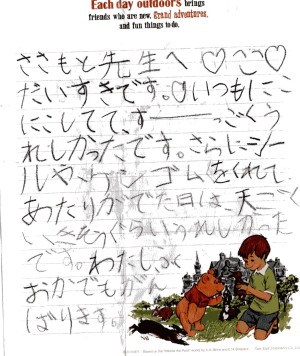 Each day outdoors brings
friends who are new, Grand adventures,
and fun things to do.
ささもと先生へ♡
だいすきです。いつもにこ
にこしてて、すーーっごくう
れしかったです。さらにシー
ルやケシゴムをくれて、
あたりがでた日は、天ごく
ぐらいうれしかった
です。わたし、
おかでもがん
ばります。